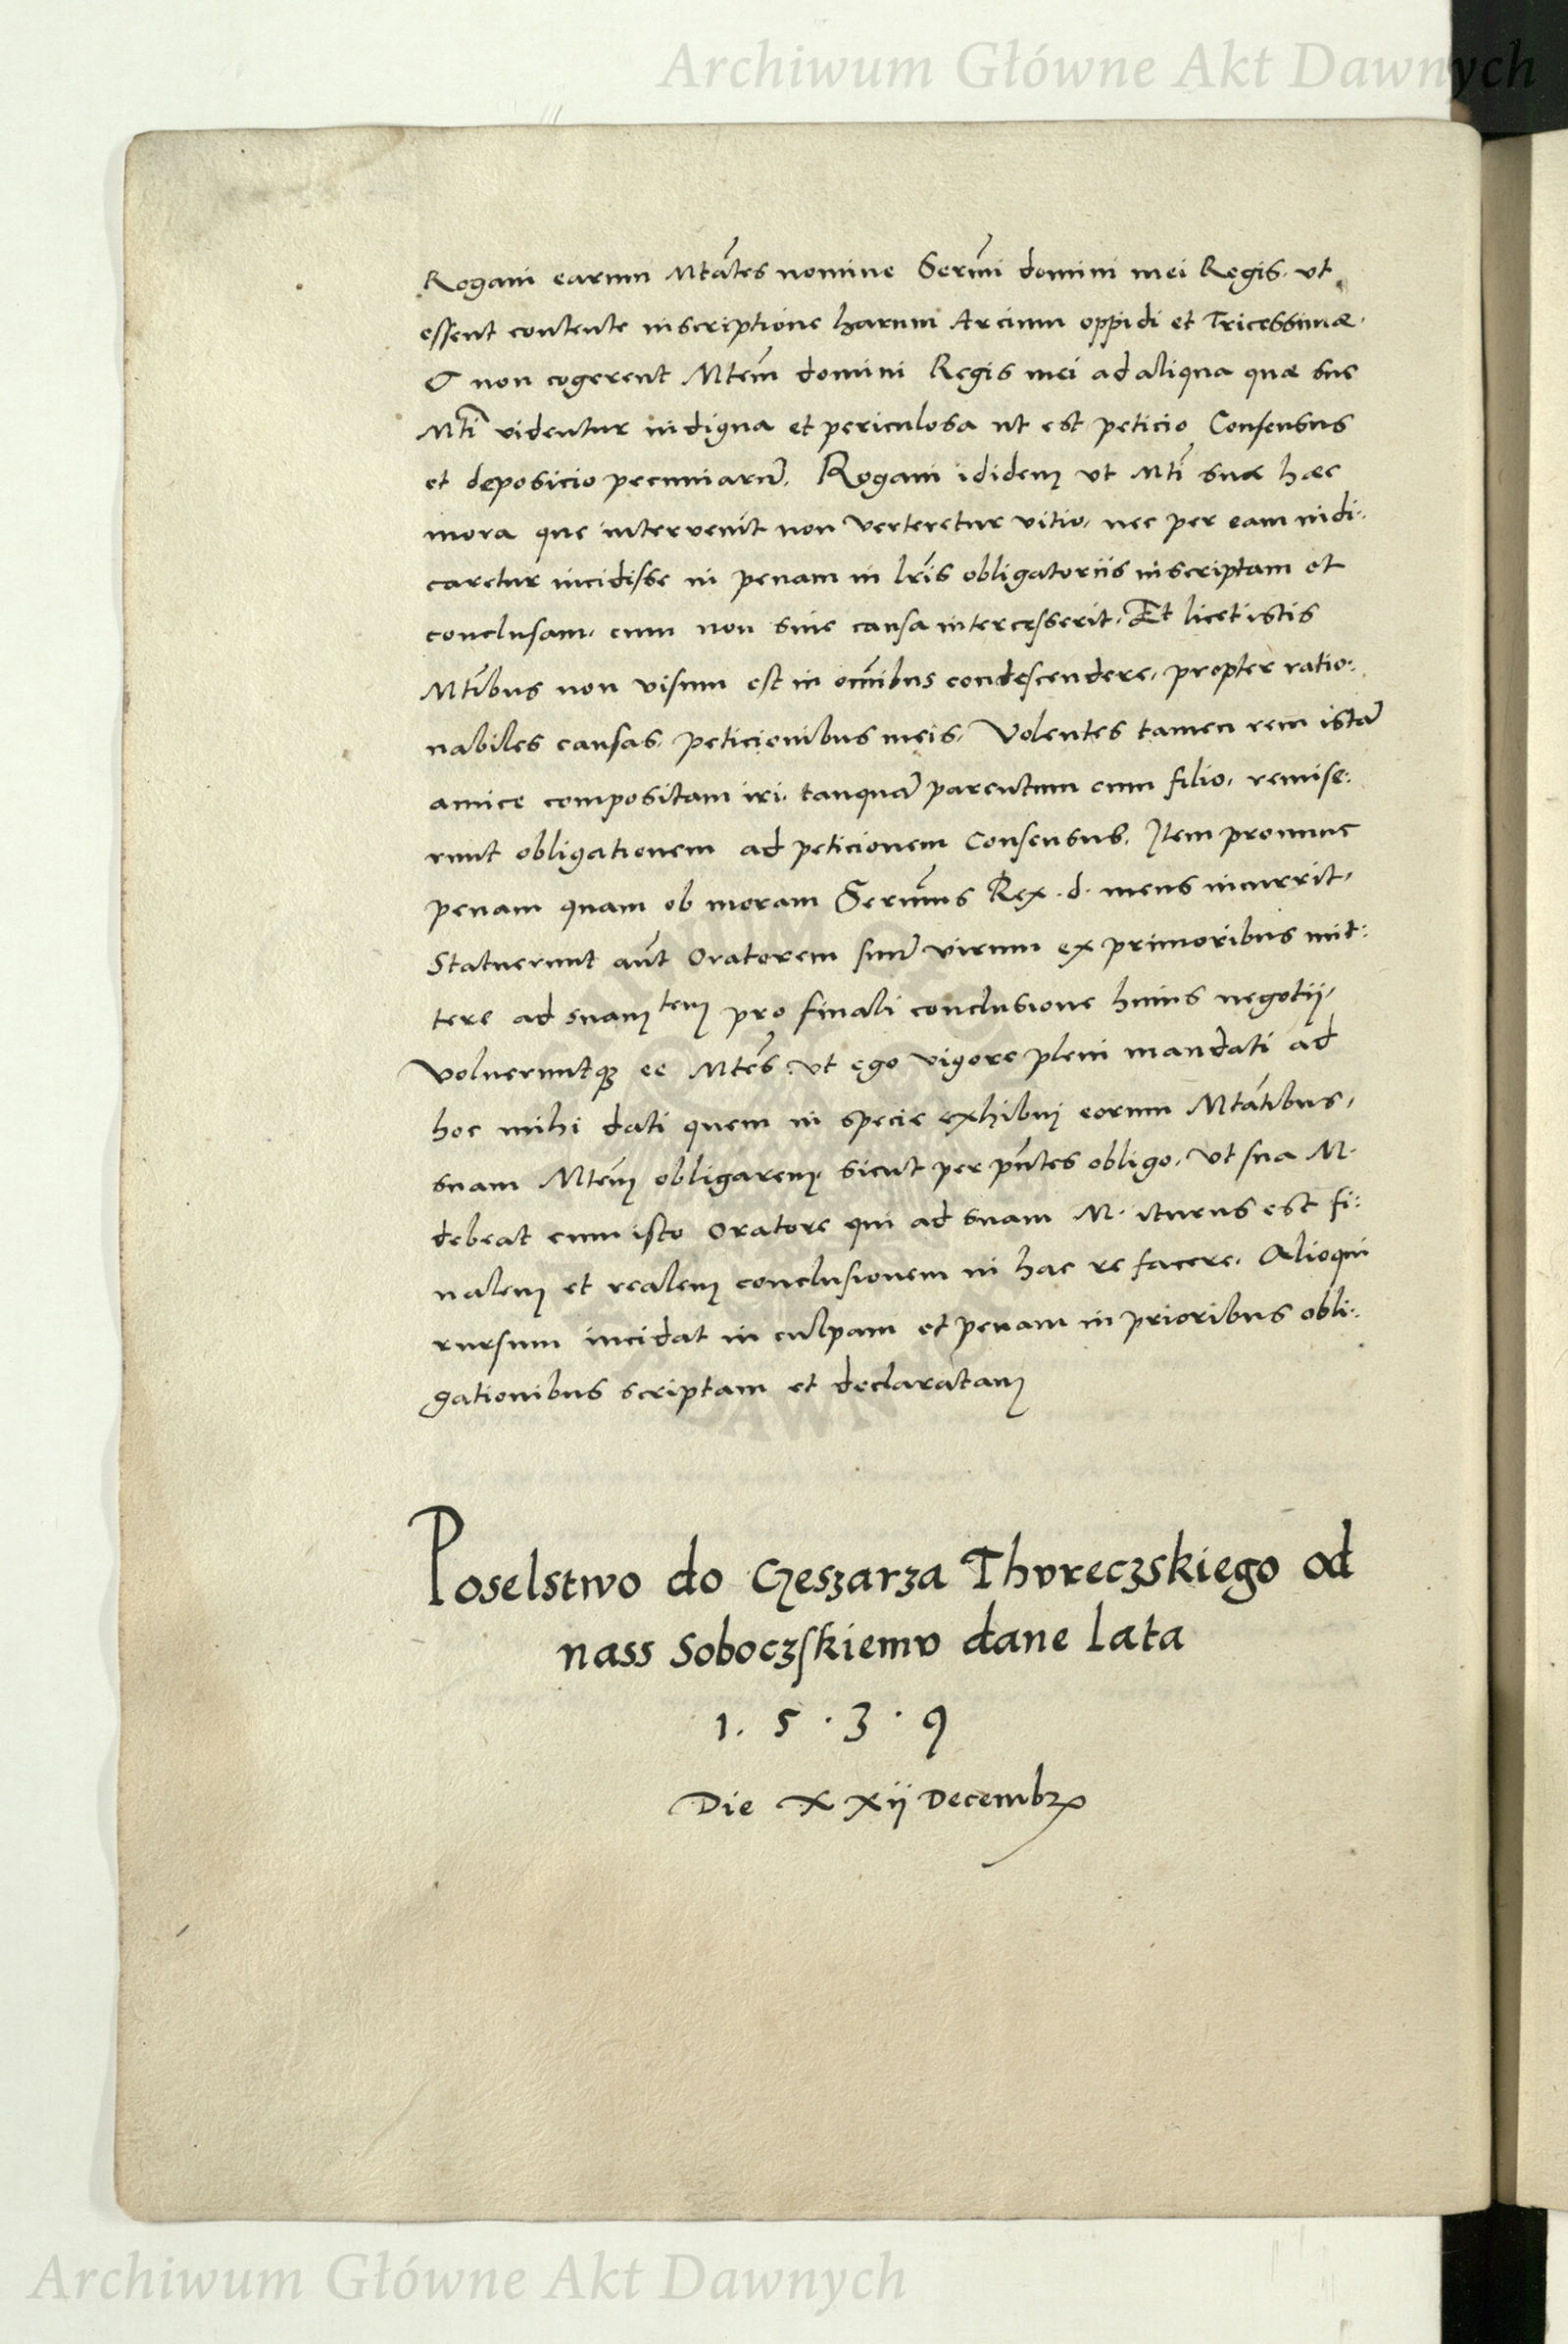 Archiwum Główne Akt Dawnych
Rogavi earum Mtātes nomine Serm̄i domini mei Regis. ut
essent contente inscriptione harum Arcium oppidi et Tricessimæ.
& non cogerent Mtem̄ domini Regis mei ad aliqua quæ sue
Mti videntur indigna et periculosa ut est peticio Consensus
et deposicio pecuniarū. Rogavi ididem ut Mti suæ hæc
mora que intervenit non verteretur vitio, nec per eam iudi:
caretur incidisse in penam in lris obligatoriis inscriptam et
conclusam, cum non sine causa intercesserit. Et licet istis
Mtibus non visum est in om̄ibus condescendere, propter ratio:
nabiles causas, peticionibus meis, Volentes tamen rem istā
amice compositam iri. tanquā parentum cum filio, remise:
runt obligationem ad peticionem Consensus. Item pronunc
penam quam ob moram Serm̄us Rex. d. meus incurrit,
Statuerunt aūt Oratorem suū virum ex primoribus mit:
tere ad suam tem pro finali conclusione huius negotij,
Volueruntq; ee Mtes. ut ego vigore pleni mandati ad
hoc mihi dati quem in specie exhibui eorum Mtātibus,
suam Mtem obligarem. sicut per pn̄tes obligo, Ut sua M.
debeat cum isto Oratore qui ad suam M. iturus est fi:
nalem et realem conclusionem in hac re facere. Alioqui
rursum incidat in culpam et penam in prioribus obli:
gationibus scriptam et declaratam
Poselstwo do Czeszarza Thvreczskiego od
nass Soboczskiemv dane lata
1. 5 . 3 . 9
Die XXij Decembr
Archiwum Główne Akt Dawnych